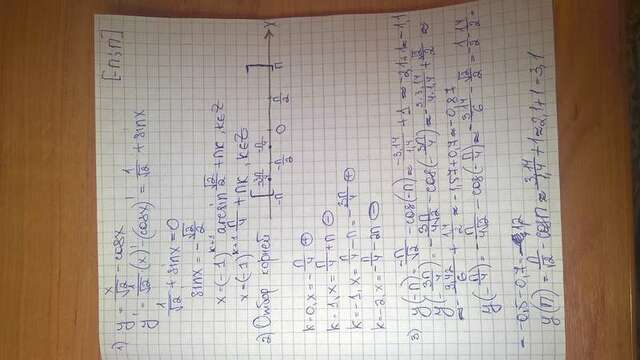 1) y = x/√2 - cosx [-π; π]
y' = 1/√2 (x)' - (cosx)' = 1/√2 + sinx
1/√2 + sinx = 0
sinx = -√2/2
x = (-1)^{k+1} arcsin √2/2 + πk, k∈Z
x = (-1)^{k+1} π/4 + πk, k∈Z
2) Отбор корней -π -3π/4 -π/2 -π/4 0 π/2 π x
k=0, x = -π/4 ⊕
k=1, x = π/4 + π ⊖
k=-1, x = π/4 - π = -3π/4 ⊕
k=-2, x = -π/4 - 2π ⊖
3) y(-π) = -π/√2 - cos(-π) ≈ -3,14/1,4 + 1 ≈ -2,1+1 ≈ -1,1
y(-3π/4) = -3π/4√2 - cos(-3π/4) ≈ -3·3,14/4·1,4 + √2/2 ≈
≈ -9,42/6 + 1,4/2 ≈ -1,57+0,7 ≈ -0,87
y(-π/4) = -π/4√2 - cos(-π/4) ≈ -3,14/6 - √2/2 = -1/2 - 1,4/2 =
= -0,5 - 0,7 = -1,2
y(π) = π/√2 - cosπ ≈ 3,14/1,4 + 1 ≈ 2,1+1 = 3,1